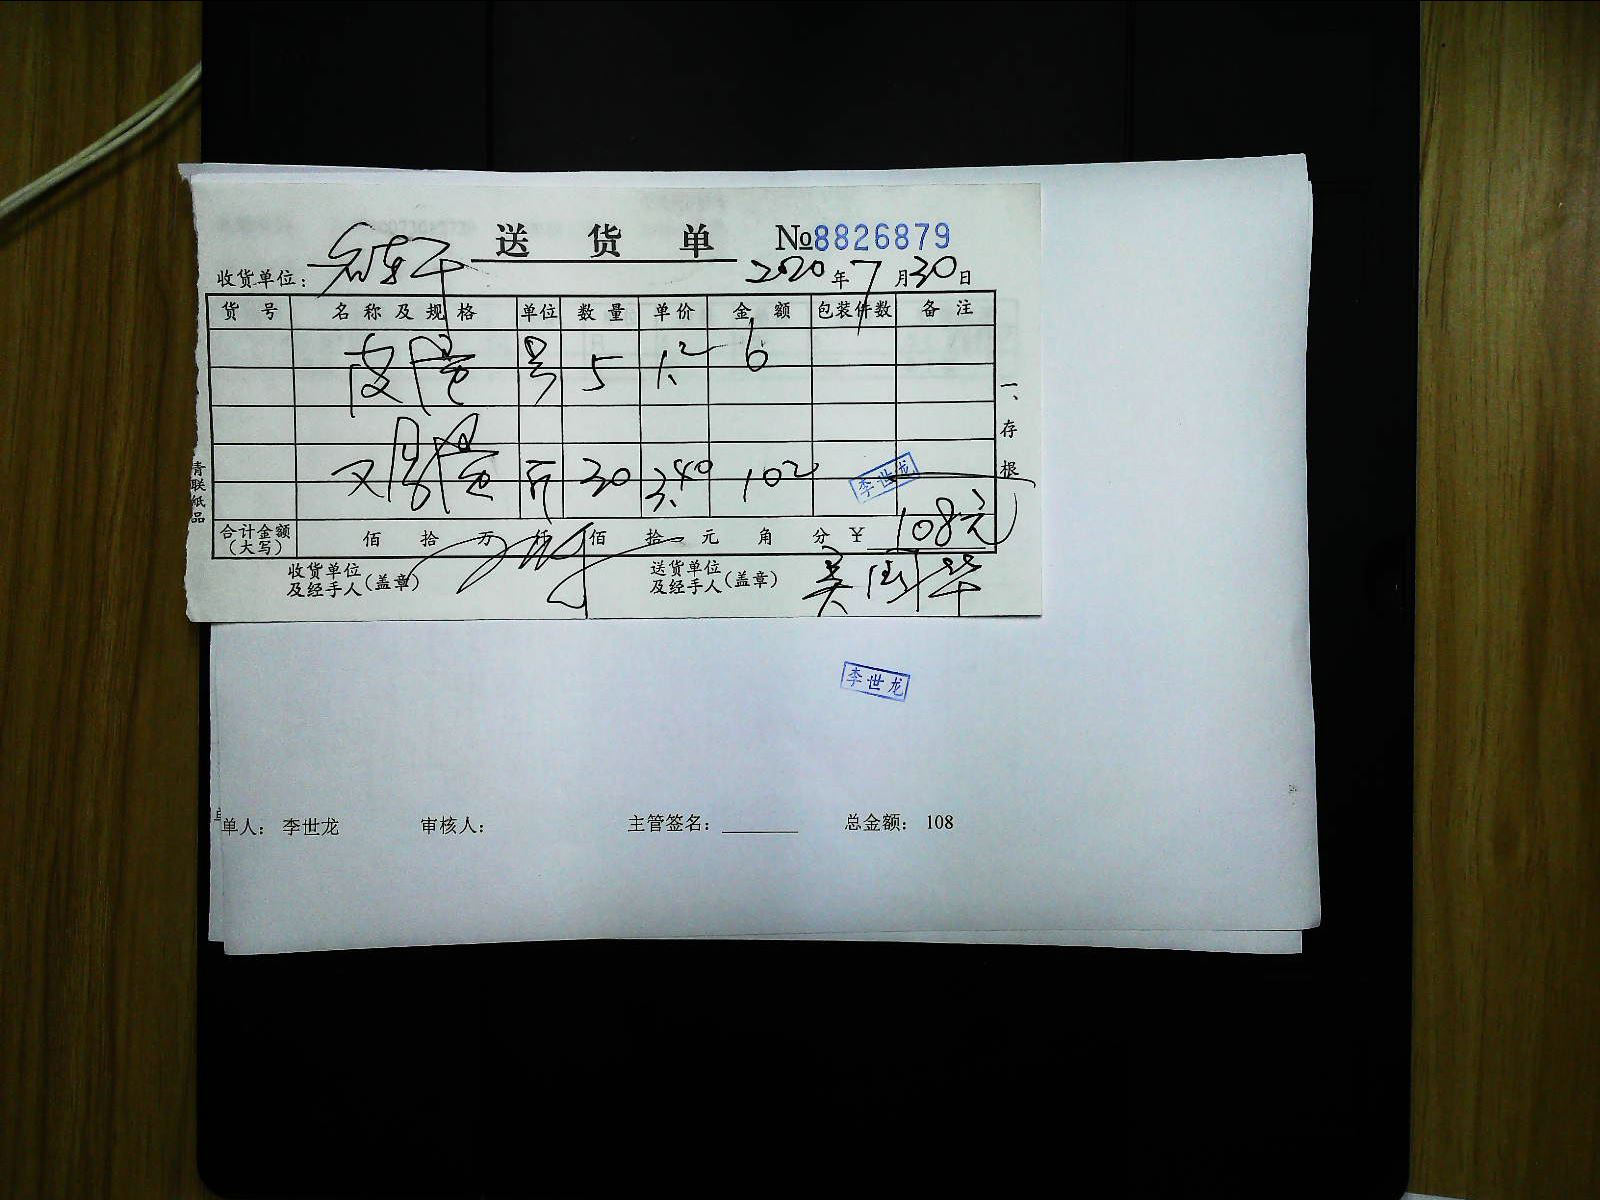 送 货 单 №8826879
收货单位： 2020年7月30日
货 号 名 称 及 规 格 单位 数 量 单价 金 额 包装件数 备 注
5 1.2 6
30 3.40 102
李世龙
合计金额（大写） 佰 拾 万 仟 佰 拾 元 角 分 ￥ 108元
收货单位及经手人（盖章） 送货单位及经手人（盖章） 吴国华
一、存根
青联纸品
李世龙
单人： 李世龙 审核人： 主管签名：________ 总金额： 108